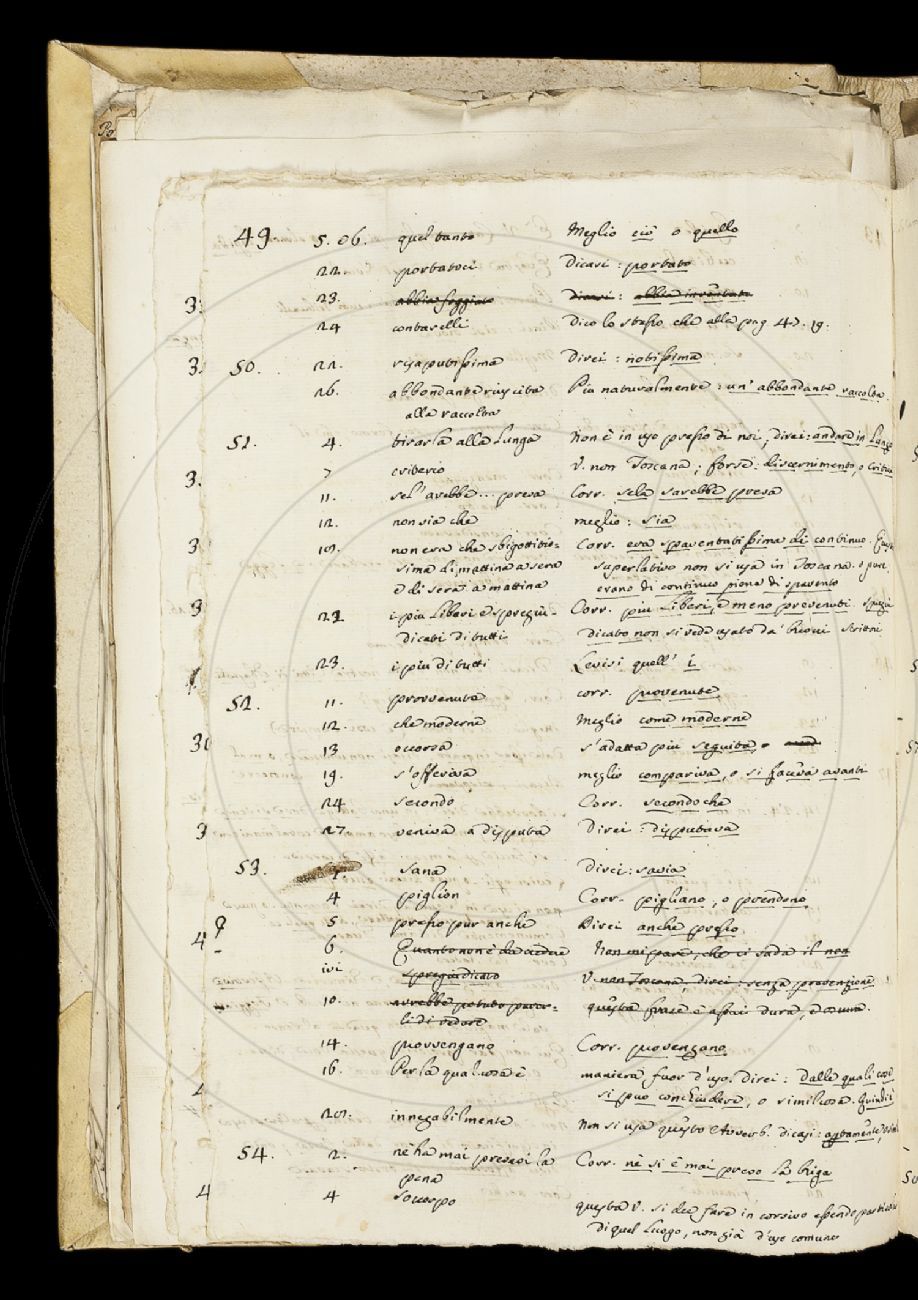 49 5. 06. quel tanto Meglio ciò o quello
22. portatoci Dicasi: portato
3. 23. abbia foggiato Dicasi: abbia inventato
24 contarelli Dico lo stesso che alla pag 47. 19.
3. 50. 22. risaputissima Direi: notissima
26. abbondante riuscita Piu naturalmente: un' abbondante raccolta
alla raccolta
51. 4. tirarla alla lunga Non è in uso presso di noi, direi: andare in lungo
3. 7 criterio V. non Toscana; forse: discernimento, o Critica
11. sel' avebbe... presa Corr. sela sarebbe presa
12. non sia che meglio: sia
3 19. non era che sbigottitis= Corr. era spaventatissima di continuo.
sima di mattina a sera superlativo non si usa in Toscana. o pure
e di sera a mattina erano di continuo piene di spavento
3 23. i piu liberi e spregiu- Corr. piu liberi, e meno prevenuti
dicati di tutti dicato non si vede usato da' buoni Scrittori
23. i piu di tutti Levisi quell' i
52. 11. provvenute corr. provenute
12. che moderne Meglio come moderne
30 13 occorsa s'adatta piu seguita, o
19. s'offeriva meglio compariva, o si faceva avanti
24 secondo Corr. secondochè
3 27. veniva a disputa Direi: disputava
53. sana Direi: savia
4 piglion Corr. pigliano, o prendono
5 presso pur anche Direi anche presso
4 6. Quanto non è da credere Non mi pare, che ci vada il non
ivi Spregiudicato V. non Toscana, direi: senza prevenzione
10. avrebbe potuto parer= questa frase è assai dura, ed oscura.
li di vedere
14. provvengano Corr. provengano
16. Per la qual cosa è maniera fuor d'uso. direi: dalle quali cose
4 si può conchiudere, o simil cosa. Quindi è
29. innegabilmente Non si usa questo Avverb. dicasi: apertamente,
54. 2. nè ha mai presasi la Corr. nè si è mai preso la briga
pena
4 4 Socorpo questa V. si dee fare in corsivo essendo particolare
di quel luogo, non già d'uso comune